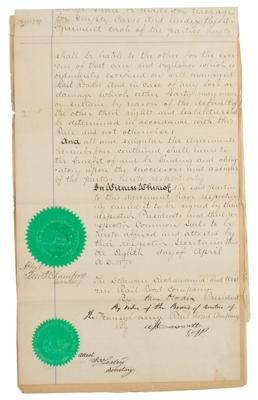 for Empty Cars. And under this
Agreement each of the parties hereto
shall be liable to the other for the exer-
cise of that care and vigilance which is
ordinarily exercised on well managed
Rail Roads And in case of any loss or
damage which either party may incur
or sustain by reason of the default of
the other their rights and liabilities shall
be determined in accordance with this
Rule and not otherwise
And all and singular the Agreements
hereinbefore contained shall inure to
the benefit of and be binding and oblig-
atory upon the successors and assigns
of the parties hereto respectively
In Witness Whereof the said parties
to this Agreement have respectively
caused it to be signed by their
respective Presidents and their
respective Common Seals to be
hereto affixed and attested by
their respective Secretaries this
the Eighth day of April
A.D.
Attest
Secretary
The Delaware Lackawanna and West
ern Rail Road Company
By President
By order of the Board of
The Pennsylvania Rail Road Company
By
Attest
Secretary